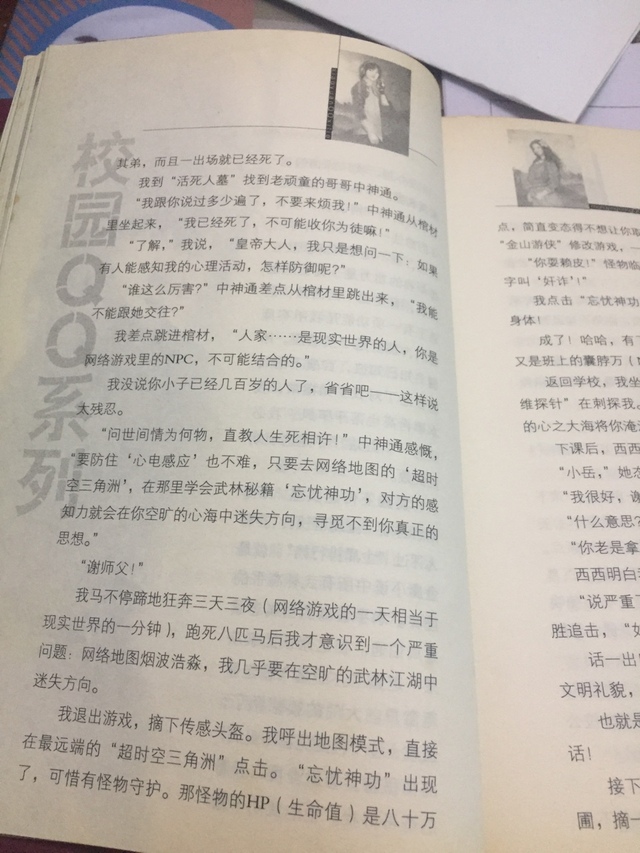 校园QQ系列
其弟，而且一出场就已经死了。
我到“活死人墓”找到老顽童的哥哥中神通。
“我跟你说过多少遍了，不要来烦我！”中神通从棺材
里坐起来，“我已经死了，不可能收你为徒嘛！”
“了解，”我说，“皇帝大人，我只是想问一下：如果
有人能感知我的心理活动，怎样防御呢？”
“谁这么厉害？”中神通差点从棺材里跳出来，“我能
不能跟她交往？”
我差点跳进棺材，“人家……是现实世界的人，你是
网络游戏里的NPC，不可能结合的。”
我没说你小子已经几百岁的人了，省省吧——这样说
太残忍。
“问世间情为何物，直教人生死相许！”中神通感慨，
“要防住‘心电感应’也不难，只要去网络地图的‘超时
空三角洲’，在那里学会武林秘籍‘忘忧神功’，对方的感
知力就会在你空旷的心海中迷失方向，寻觅不到你真正的
思想。”
“谢师父！”
我马不停蹄地狂奔三天三夜（网络游戏的一天相当于
现实世界的一分钟），跑死八匹马后我才意识到一个严重
问题：网络地图烟波浩淼，我几乎要在空旷的武林江湖中
迷失方向。
我退出游戏，摘下传感头盔。我呼出地图模式，直接
在最远端的“超时空三角洲”点击。“忘忧神功”出现
了，可惜有怪物守护。那怪物的HP（生命值）是八十万
点，简直变态得不想让你取
“金山游侠”修改游戏，一
“你耍赖皮！”怪物临
字叫‘奸诈’！”
我点击“忘忧神功
身体！
成了！哈哈，有了
又是班上的囊脖万（
返回学校，我坐
维探针”在刺探我。
的心之大海将你淹没
下课后，西西
“小岳，”她态
“我很好，谢
“什么意思？
“你老是拿
西西明白我
“说严重了
胜追击，“如
话一出
文明礼貌，
也就是
话！
接下
圃，摘一